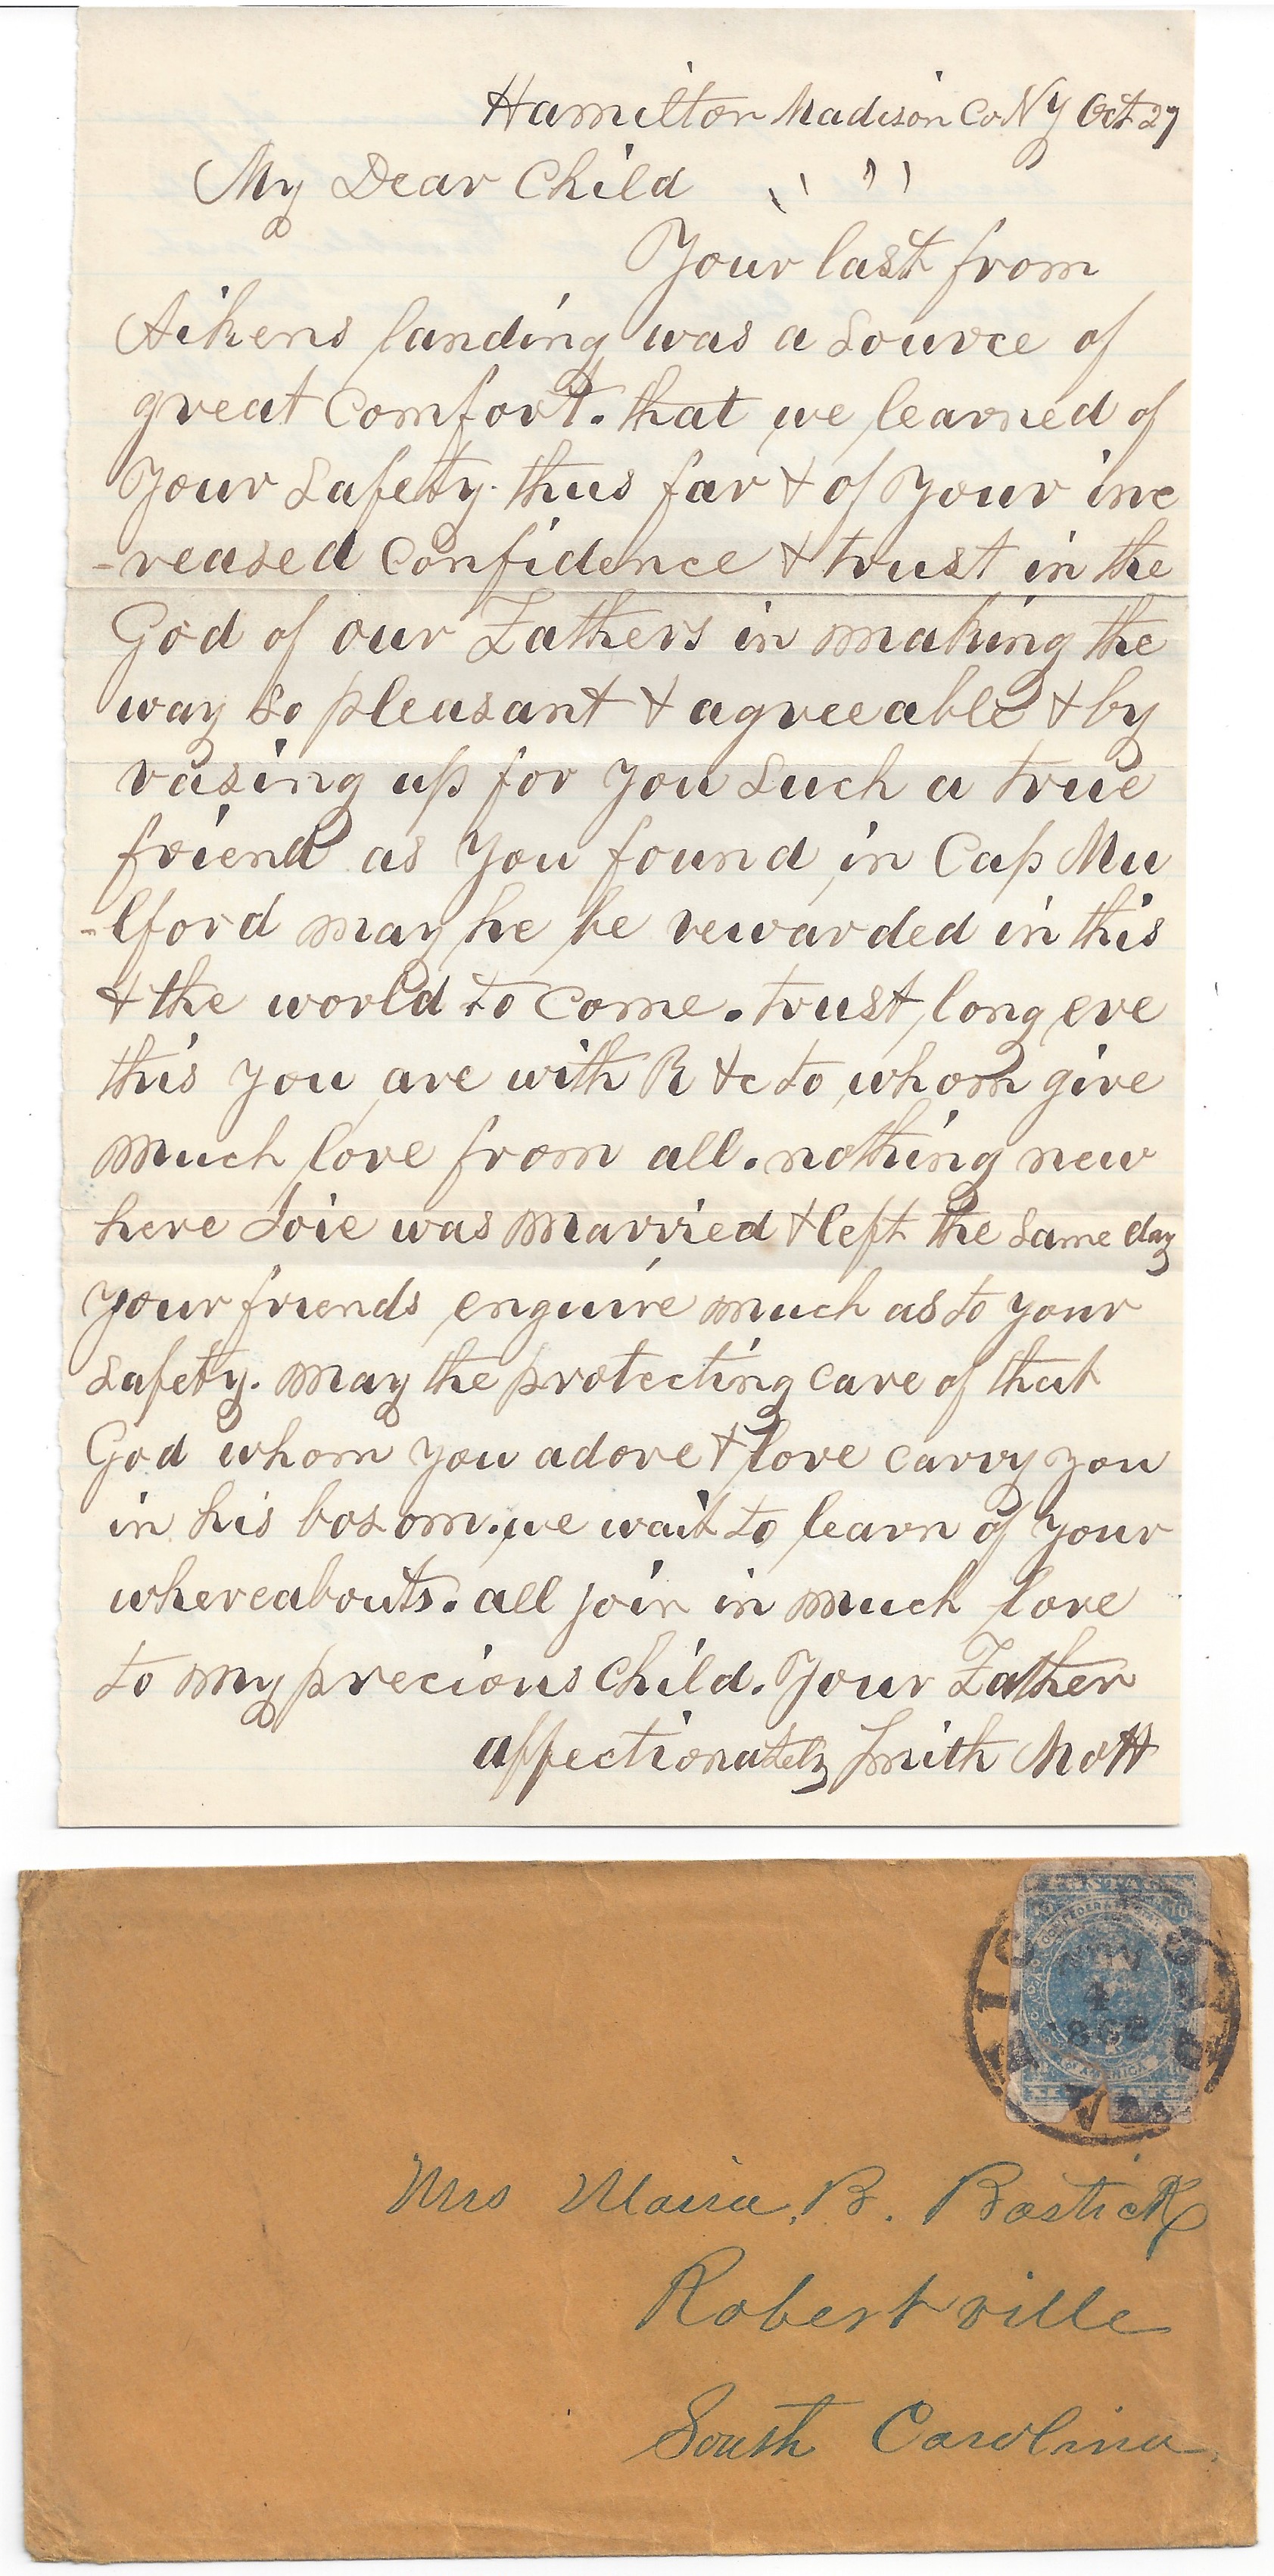 Hamilton Madison Co NY Oct 27
My Dear Child
Your last from
Aikens landing was a source of
great Comfort. that we learned of
your safety. thus far & of your inc
-reased Confidence & trust in the
God of our Fathers in making the
way so pleasant & agreeable & by
rasing up for you such a true
friend as you found in Cap Mu
-lford may he be rewarded in this
& the world to come. trust long ere
this you are with R &c to whom give
much love from all. nothing new
here Joie was married & left the same day
your friends enquire much as to your
safety. may the protecting care of that
God whom you adore & love carry you
in his bosom. we wait to learn of your
whereabouts. all join in much love
to my precious Child. Your Father
affectionately Smith Mott
POSTAGE
10 10
CONFEDERATE STATES
OF AMERICA
TEN CENTS
RICHMOND
NOV
1
1862
VA
Mrs Maria. B. Bostick
Robertville
South Carolina